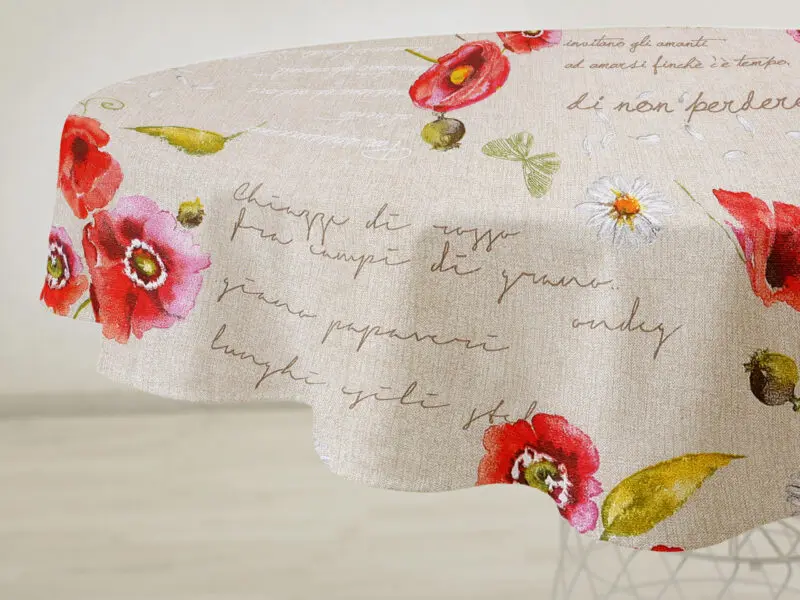 invitano gli amanti
ad amarsi finchè c'è tempo.
di non perdere
Chiazze di rosso
fra campi di grano..
giano papaveri
ondeg
lunghi esili stel